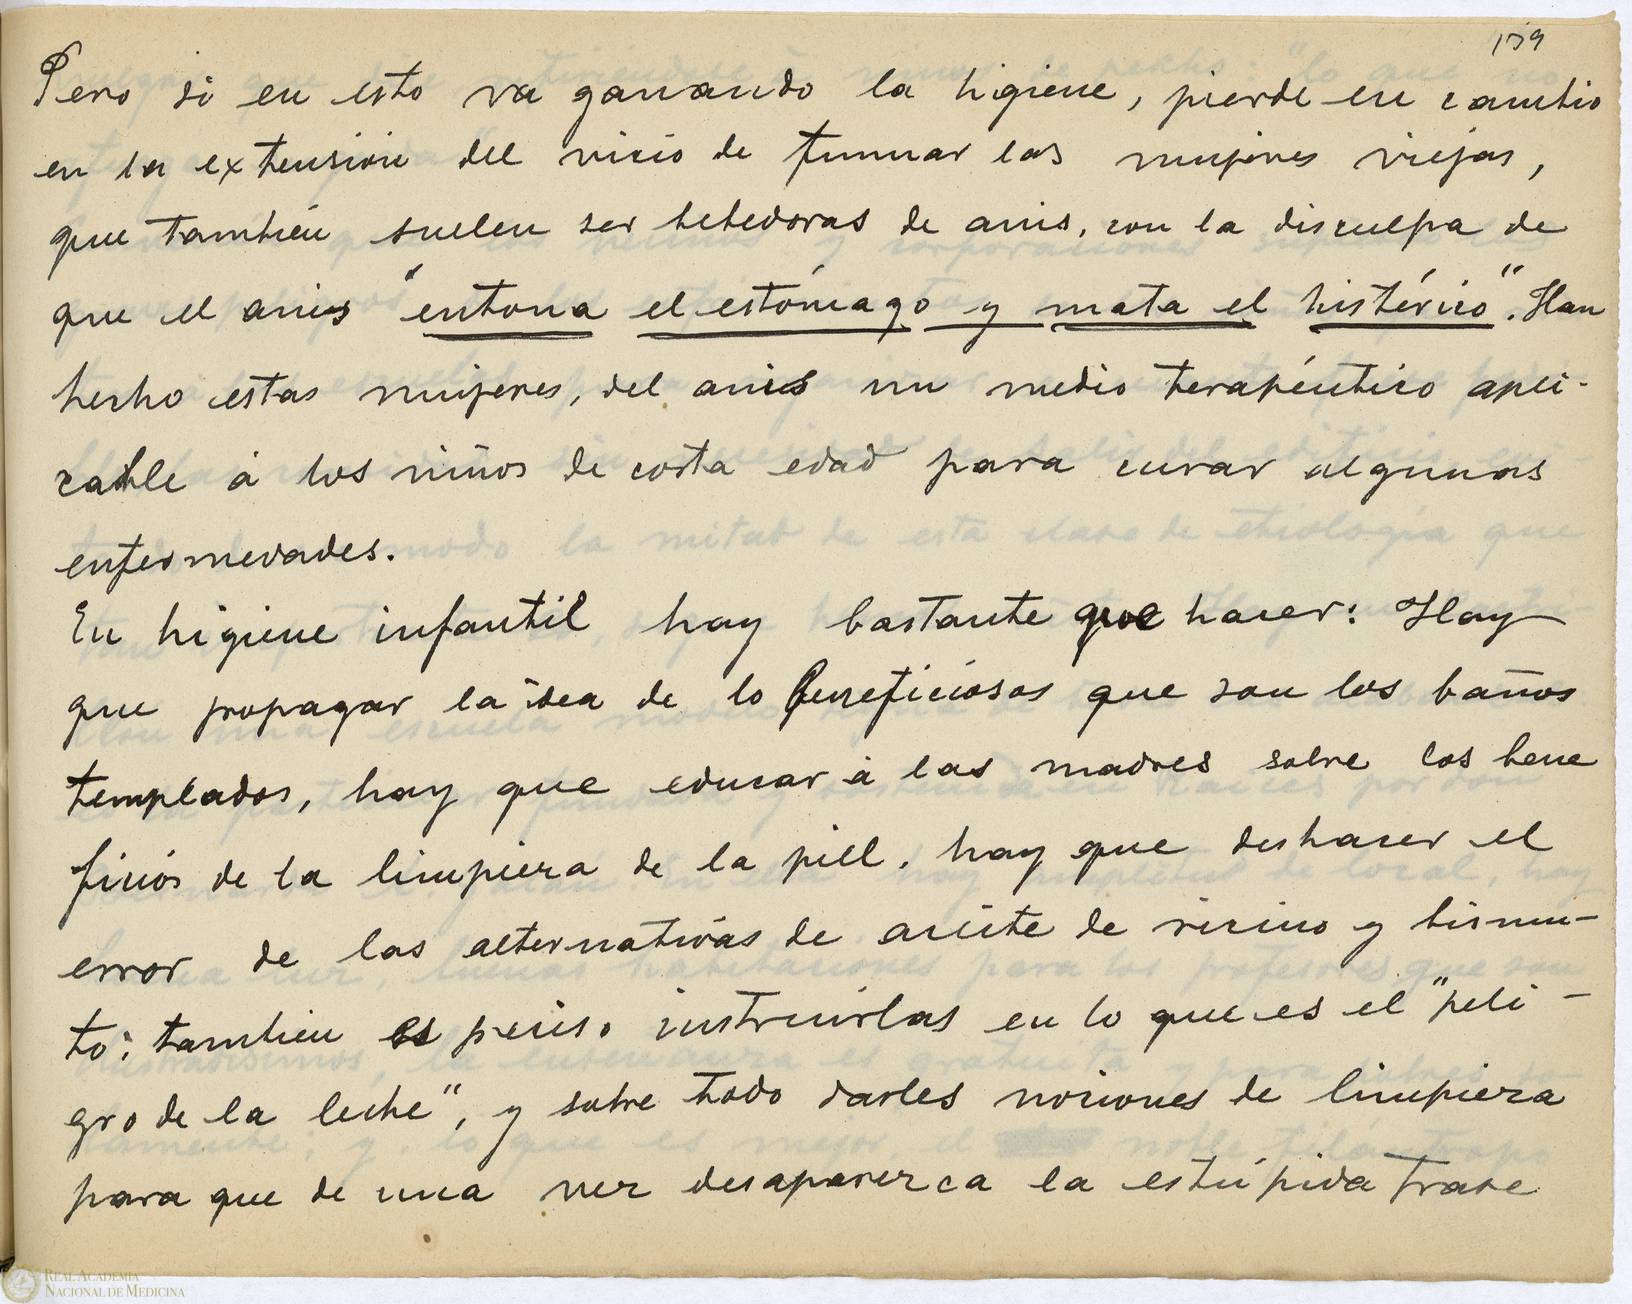 159
Pero si en esto va ganando la higiene, pierde en cambio
en la extensión del vicio de fumar las mujeres viejas,
que también suelen ser bebedoras de anis, con la disculpa de
que el anis "entona el estómago y mata el histérico". Han
hecho estas mujeres, del anis un medio terapéutico apli-
cable á los niños de corta edad para curar algunas
enfermedades.
En higiene infantil hay bastante que hacer: Hay
que propagar la idea de lo beneficiosos que son los baños
templados, hay que educar á las madres sobre los bene
ficios de la limpieza de la piel, hay que deshacer el
error de las alternativas de aceite de ricino y bismu-
to; tambien es preciso instruirlas en lo que es el "peli-
gro de la leche", y sobre todo darles nociones de limpieza
para que de una vez desaparezca la estúpida frase
REAL ACADEMIA
NACIONAL DE MEDICINA